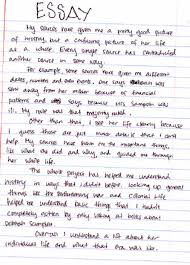 ESSAY
My sources have given me a pretty good picture
of history, but a confusing picture of her life
as a whole. Every single source has contradicted
another source in some way.
For example some sources have given me different
dates, names and data events. One says was
sent away from her mother because of financial
problems and says because Mrs. Sampson was
ill. My role was that
Other than that I see her life clearly because
I guess those are just minor details that I can't
help. My sources have given me the important things
like what she did and why, and guided me through
her whole life.
This whole project has helped me understand
history in ways that I didn't before. Looking up general
things like the Revolutionary War and Colonial Life
helped me understand basic things that I wouldn't
completely gotten by only looking at books about
Deborah Sampson.
Overall I understand a lot about her
individual life and what that era was like.